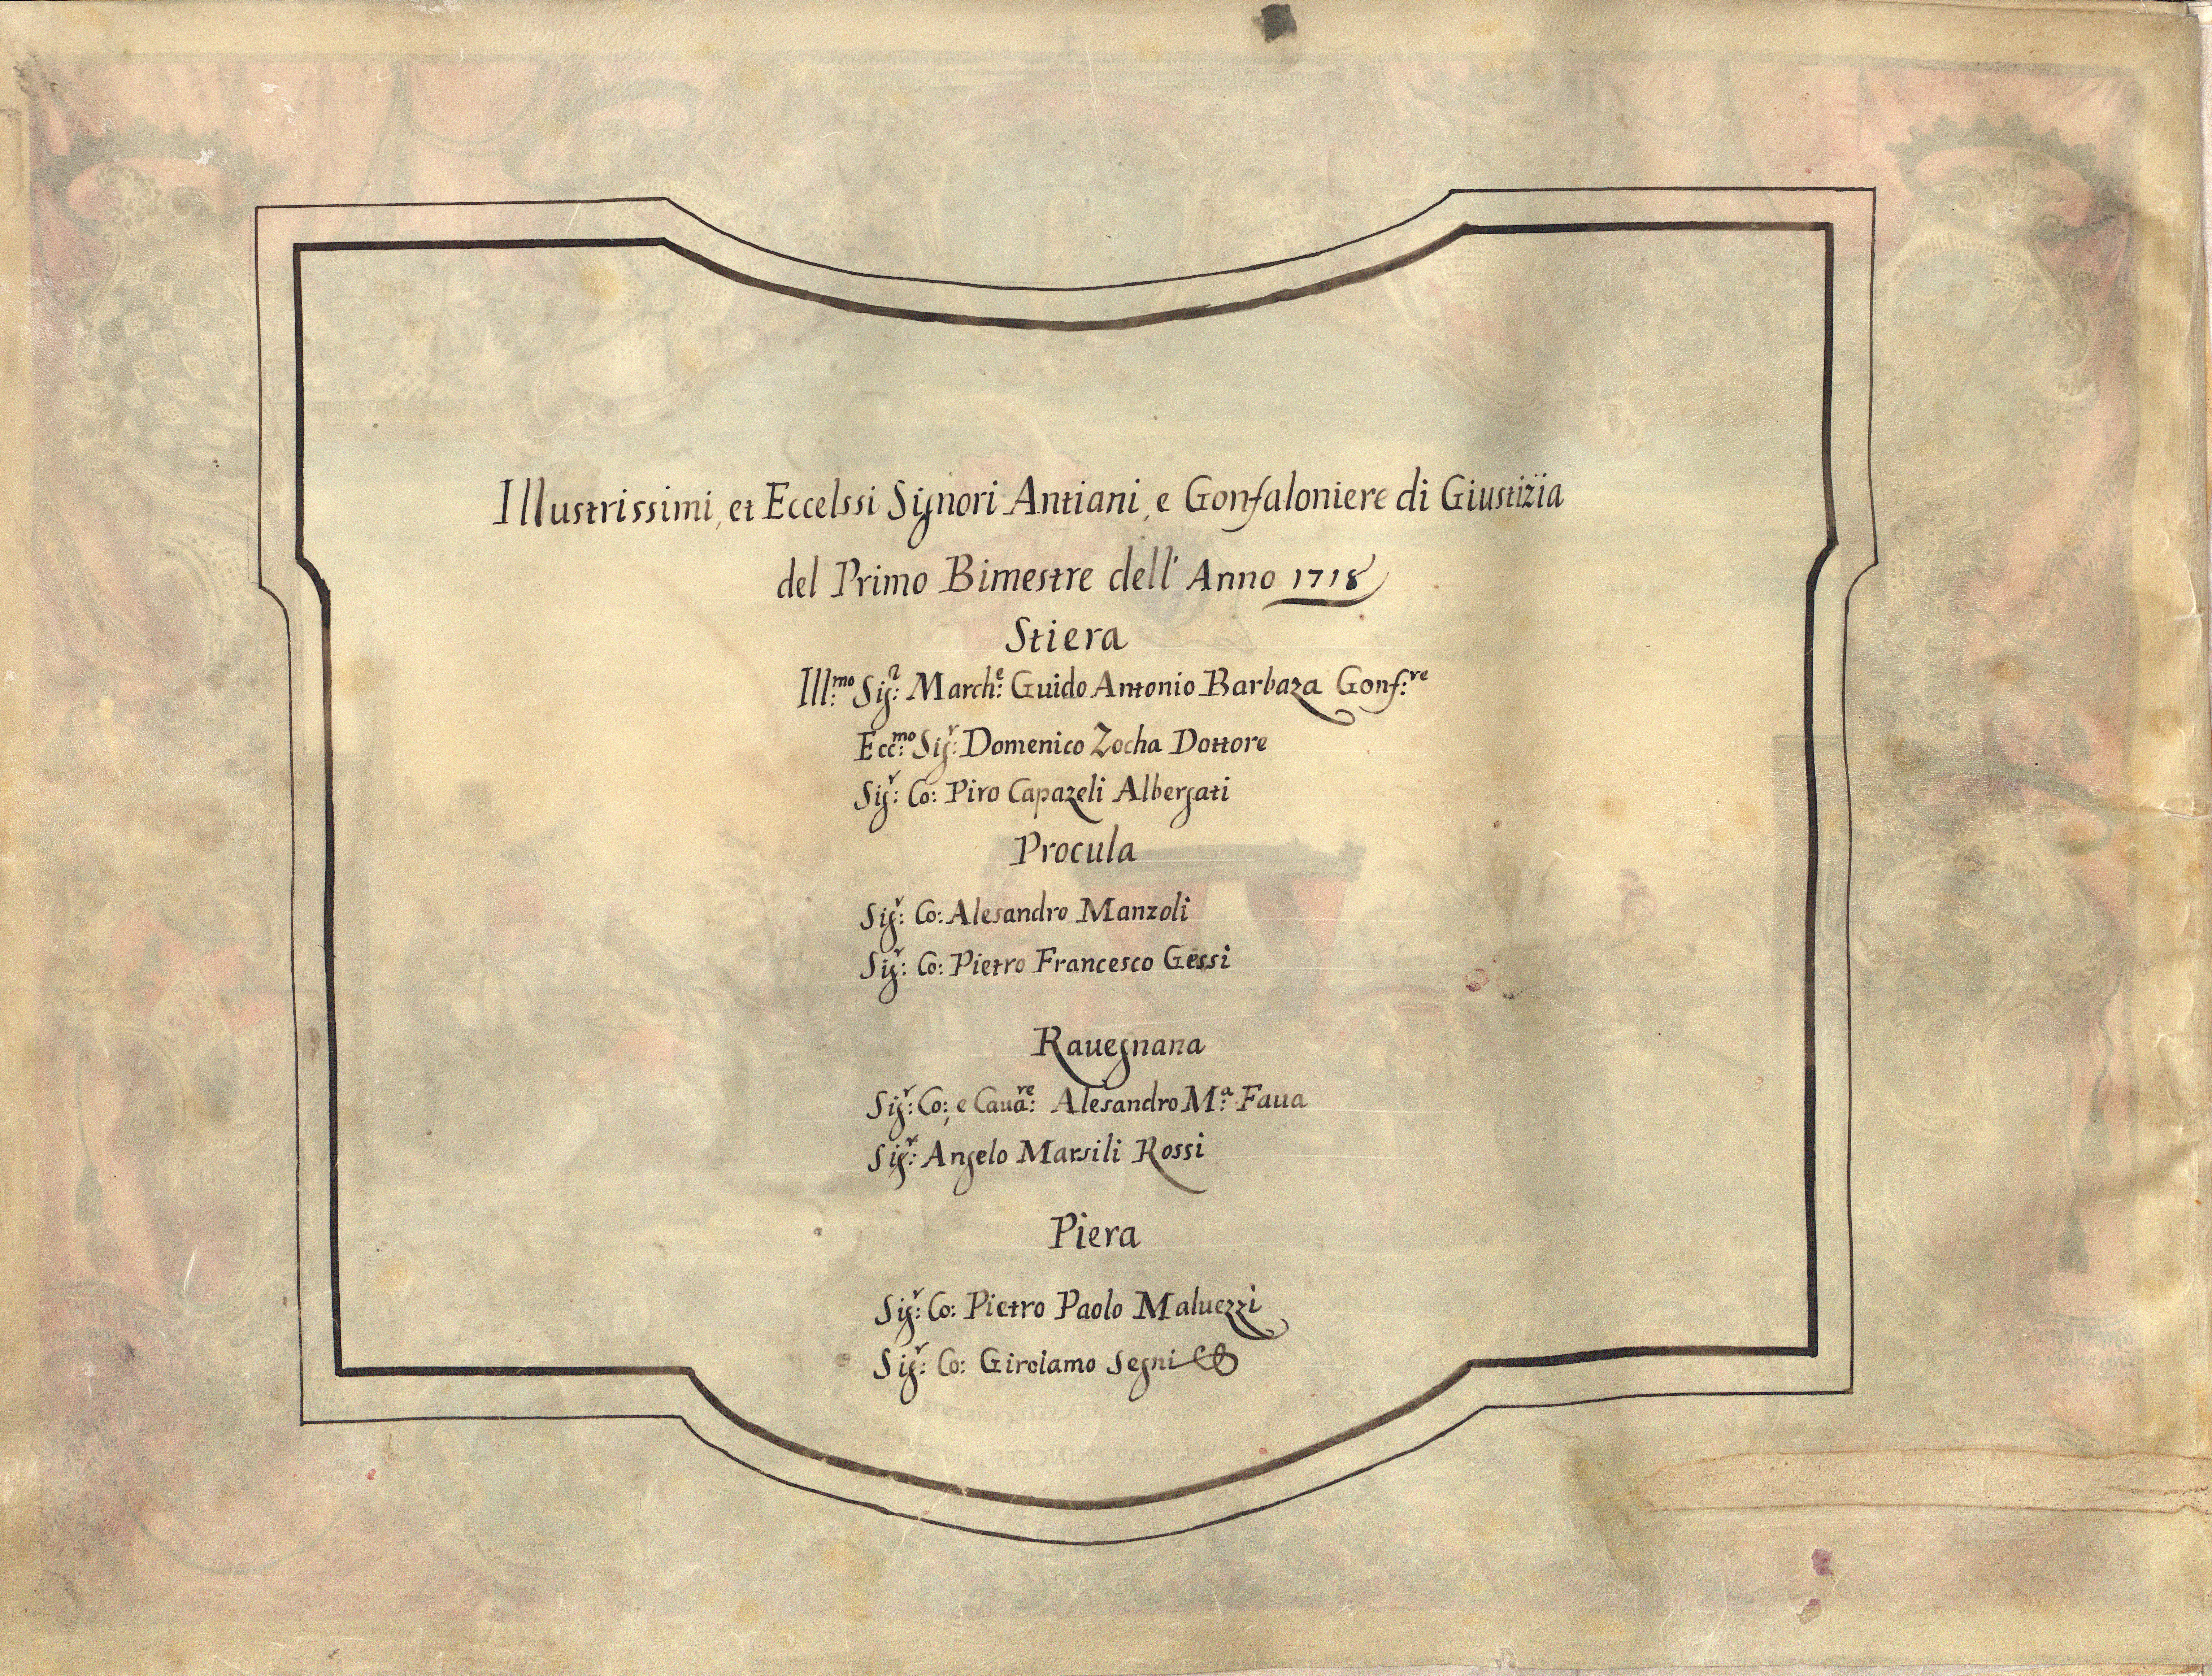 Illustrissimi, et Eccelssi Signori Antiani, e Gonfaloniere di Giustizia
del Primo Bimestre dell' Anno 1718
Stiera
Ill:mo Sig:r March:e Guido Antonio Barbaza Gonf:re
Ecc:mo Sig:r Domenico Zocha Dottore
Sig:r Co: Piro Capazeli Albergati
Procula
Sig:r Co: Alesandro Manzoli
Sig:r Co: Pietro Francesco Gessi
Rauegnana
Sig:r Co: e Caua:re Alesandro M:a Faua
Sig:r Angelo Marsili Rossi
Piera
Sig:r Co: Pietro Paolo Maluezzi
Sig:r Co: Girolamo Segni